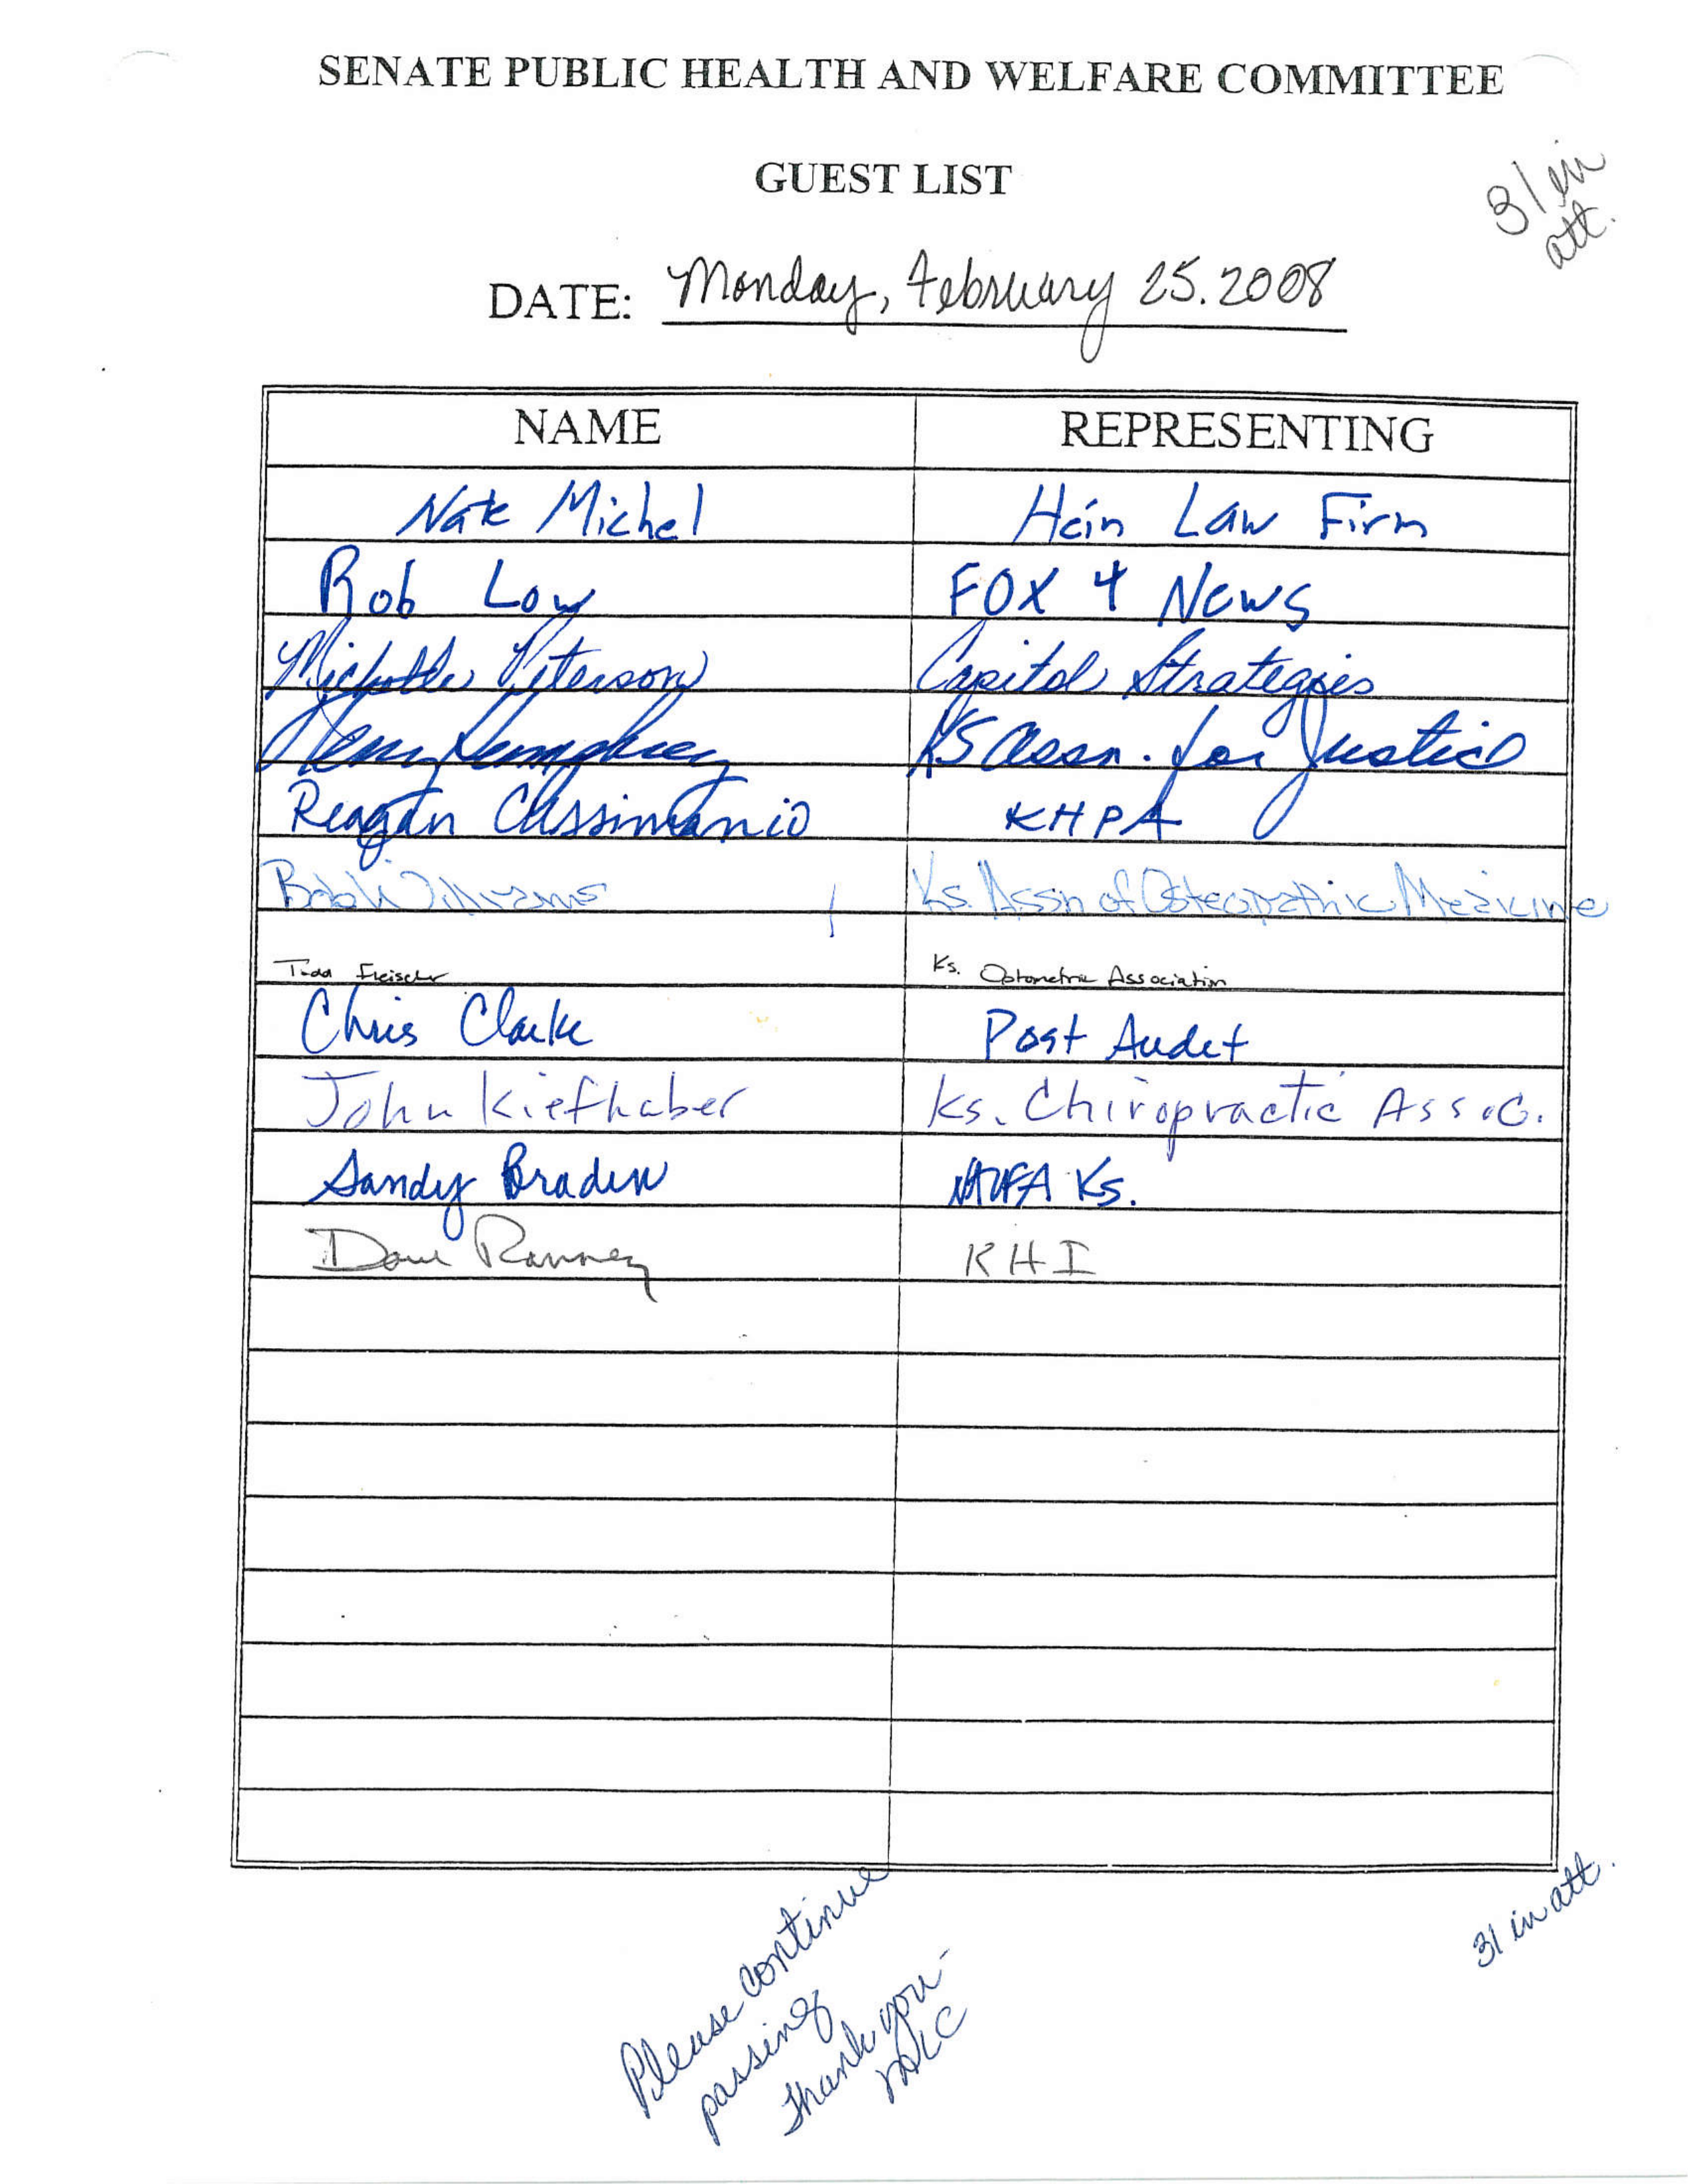 SENATE PUBLIC HEALTH AND WELFARE COMMITTEE
GUEST LIST
31 in
att.
DATE: Monday, February 25. 2008
NAME REPRESENTING
Nate Michel Hein Law Firm
Rob Low FOX 4 News
Michelle Peterson Capitol Strategies
Humphrey KS Assn. for Justice
Reagan Cussimanio KHPA
Bob Williams Ks. Assn of Osteopathic Medicine
Todd Fleischer Ks. Optometric Association
Chris Clarke Post Audit
John Kiefhaber Ks. Chiropractic Assoc.
Sandy Braden Ks.
Dave Ranney KHI
Please continue
passing
Thank you -
31 in att.